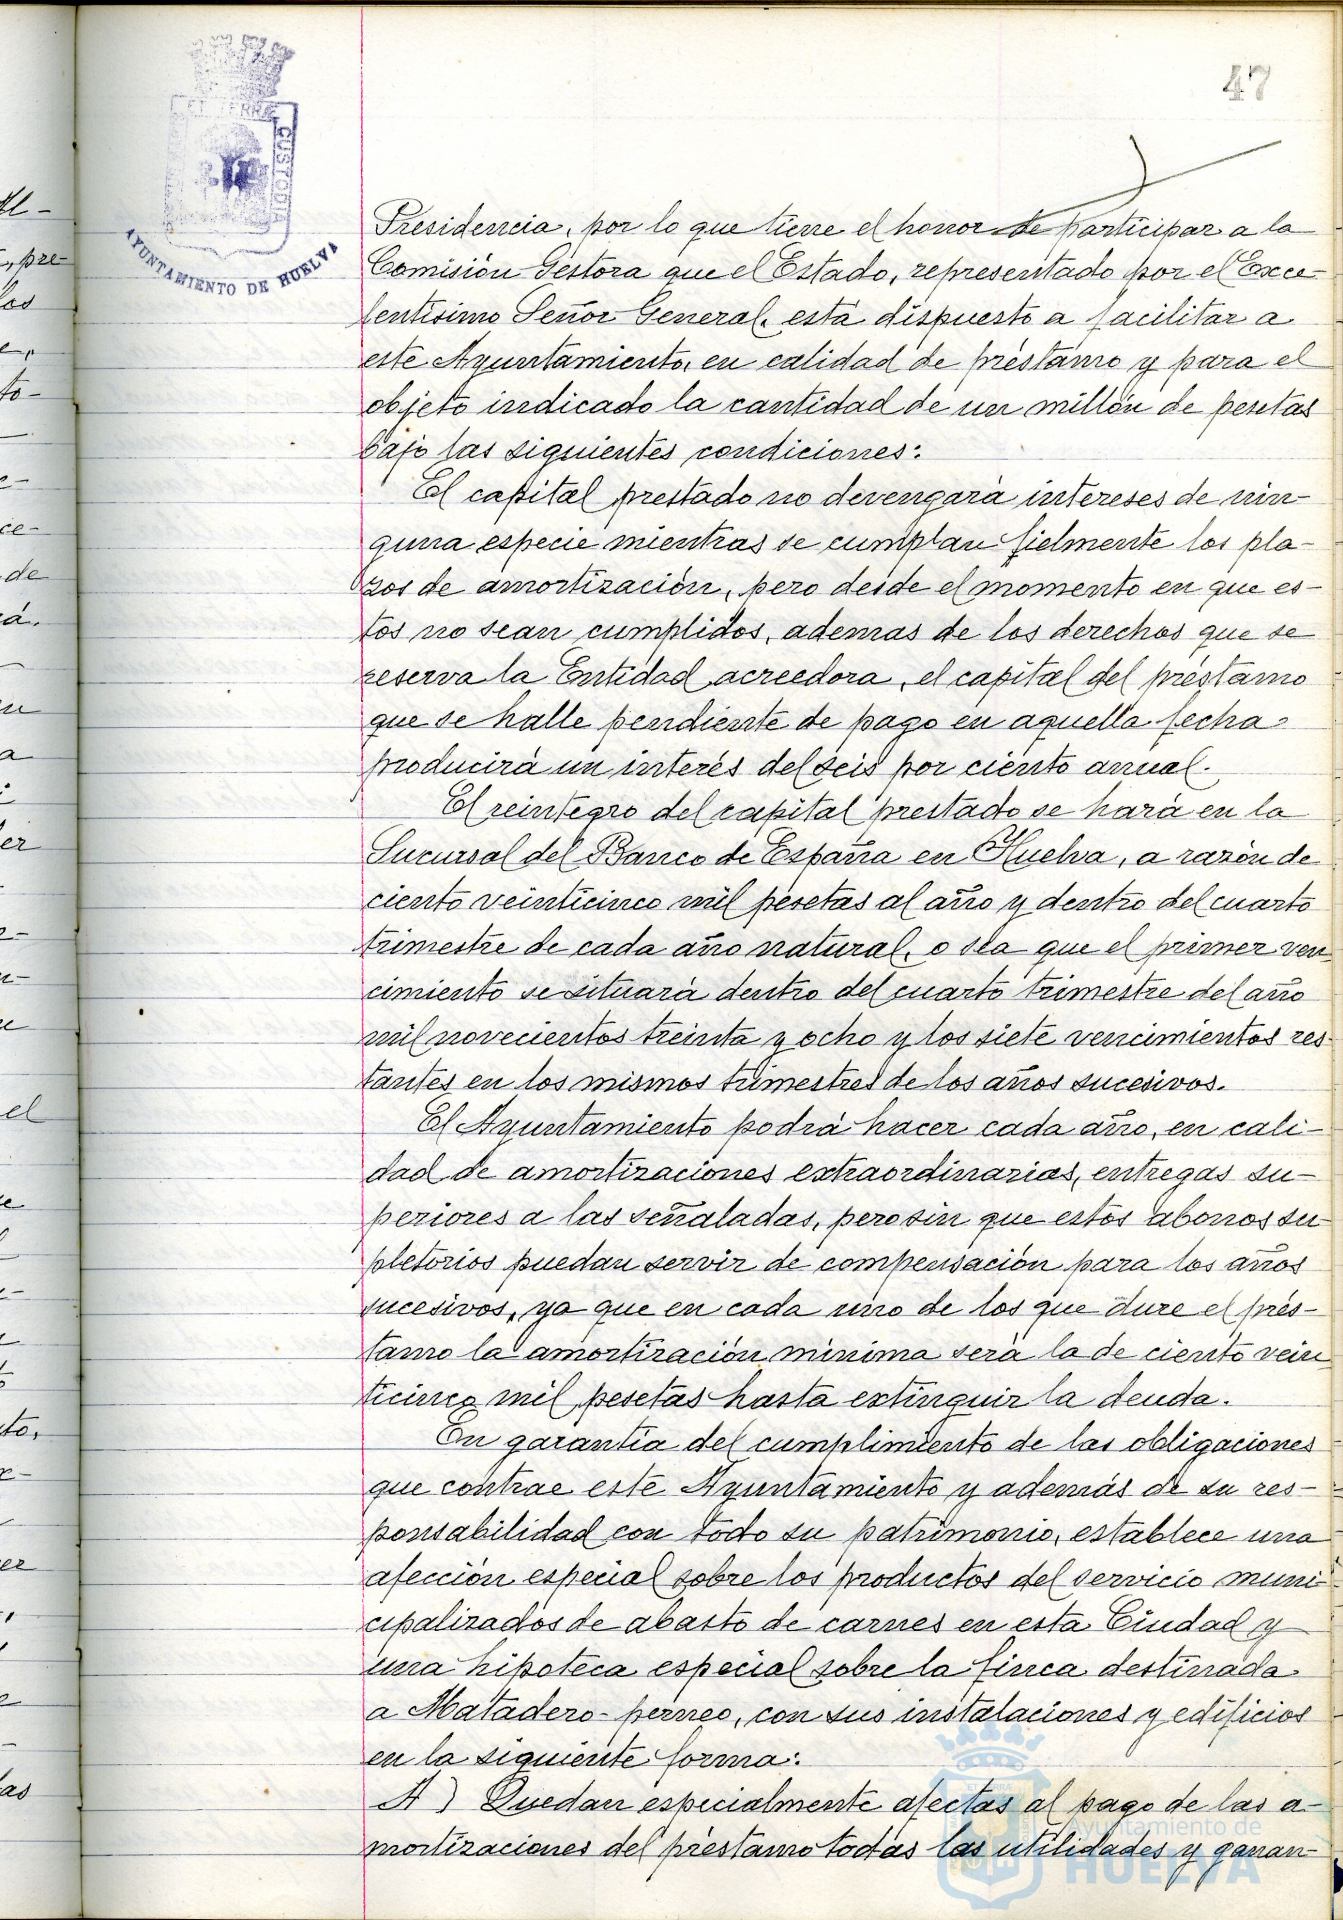 47
ET TERRÆ
CUSTODIA
AYUNTAMIENTO DE HUELVA
Presidencia, por lo que tiene el honor de participar a la
Comisión Gestora que el Estado, representado por el Exce-
lentísimo Señor General, está dispuesto a facilitar a
este Ayuntamiento, en calidad de préstamo y para el
objeto indicado la cantidad de un millón de pesetas
bajo las siguientes condiciones:
El capital prestado no devengará intereses de nin-
guna especie mientras se cumplan fielmente los pla-
zos de amortización, pero desde el momento en que es-
tos no sean cumplidos, ademas de los derechos que se
reserva la Entidad acreedora, el capital del préstamo
que se halle pendiente de pago en aquella fecha
producirá un interés del seis por ciento anual.
El reintegro del capital prestado se hará en la
Sucursal del Banco de España en Huelva, a razón de
ciento veinticinco mil pesetas al año y dentro del cuarto
trimestre de cada año natural, o sea que el primer ven
cimiento se situará dentro del cuarto trimestre del año
mil novecientos treinta y ocho y los siete vencimientos res-
tantes en los mismos trimestres de los años sucesivos.
El Ayuntamiento podrá hacer cada año, en cali-
dad de amortizaciones extraordinarias, entregas su-
periores a las señaladas, pero sin que estos abonos su
pletorios puedan servir de compensación para los años
sucesivos, ya que en cada uno de los que dure el prés-
tamo la amortización mínima será la de ciento vein
ticinco mil pesetas hasta extinguir la deuda.
En garantía del cumplimiento de las obligaciones
que contrae este Ayuntamiento y además de su res-
ponsabilidad con todo su patrimonio, establece una
afección especial sobre los productos del servicio muni
cipalizados de abasto de carnes en esta Ciudad y
una hipoteca especial sobre la finca destinada
a Matadero-perneo, con sus instalaciones y edificios
en la siguiente forma:
A) Quedan especialmente afectas al pago de las a-
mortizaciones del préstamo todas las utilidades y ganan-
Ayuntamiento de
HUELVA